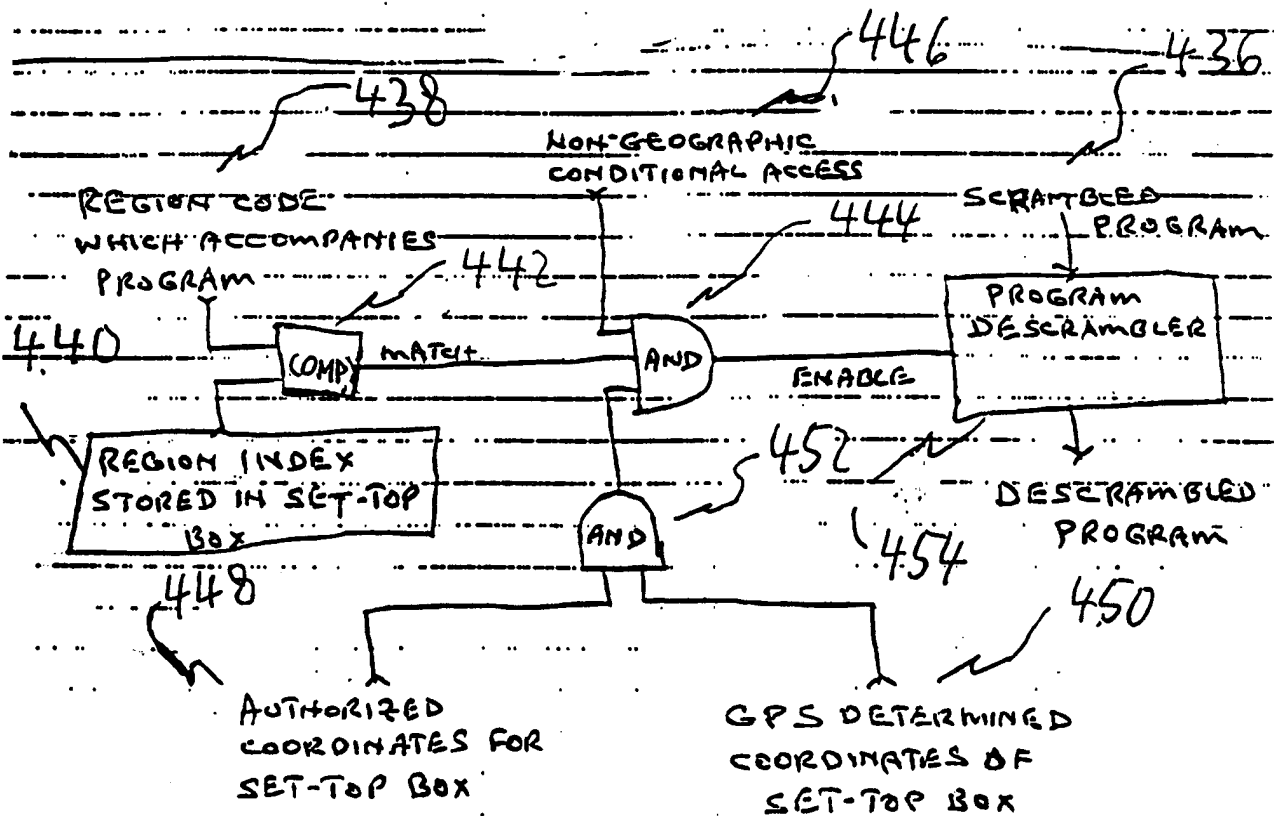 446
436
438
NON-GEOGRAPHIC
CONDITIONAL ACCESS
REGION CODE
WHICH ACCOMPANIES
PROGRAM
SCRAMBLED
PROGRAM
444
442
440
COMP
MATCH
AND
ENABLE
PROGRAM
DESCRAMBLER
REGION INDEX
STORED IN SET-TOP
BOX
452
AND
454
DESCRAMBLED
PROGRAM
448
450
AUTHORIZED
COORDINATES FOR
SET-TOP BOX
GPS DETERMINED
COORDINATES OF
SET-TOP BOX